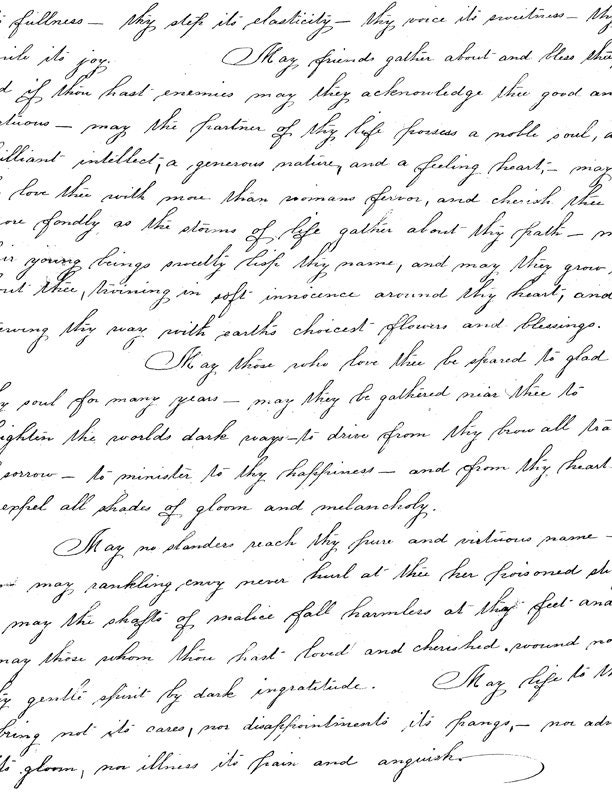 fullness — thy step its elasticity — thy voice its sweetness — thy
its joy. May friends gather about and bless thee,
if thou hast enemies may they acknowledge thee good an
tuous — may the partner of thy life possess a noble soul, a
illiant intellect, a generous nature, and a feeling heart, — may
love thee with more than womans fervor, and cherish thee
ore fondly as the storms of life gather about thy path — m
ir young beings sweetly lisp thy name, and may they grow,
out thee, twining in soft innocence around thy heart, and
ewing thy way with earths choicest flowers and blessings.
May those who love thee be spared to glad
y soul for many years — may they be gathered near thee to
ighten the worlds dark ways — to drive from thy brow all tra
sorrow — to minister to thy happiness — and from thy heart
expel all shades of gloom and melancholy.
May no slanders reach thy pure and virtuous name —
may rankling envy never hurl at thee her poisoned st
may the shafts of malice fall harmless at thy feet and
may those whom thou hast loved and cherished wound no
y gentle spirit by dark ingratitude. May life to th
bring not its cares, nor disappointments its pangs, — nor adv
ts gloom, nor illness its pain and anguish.